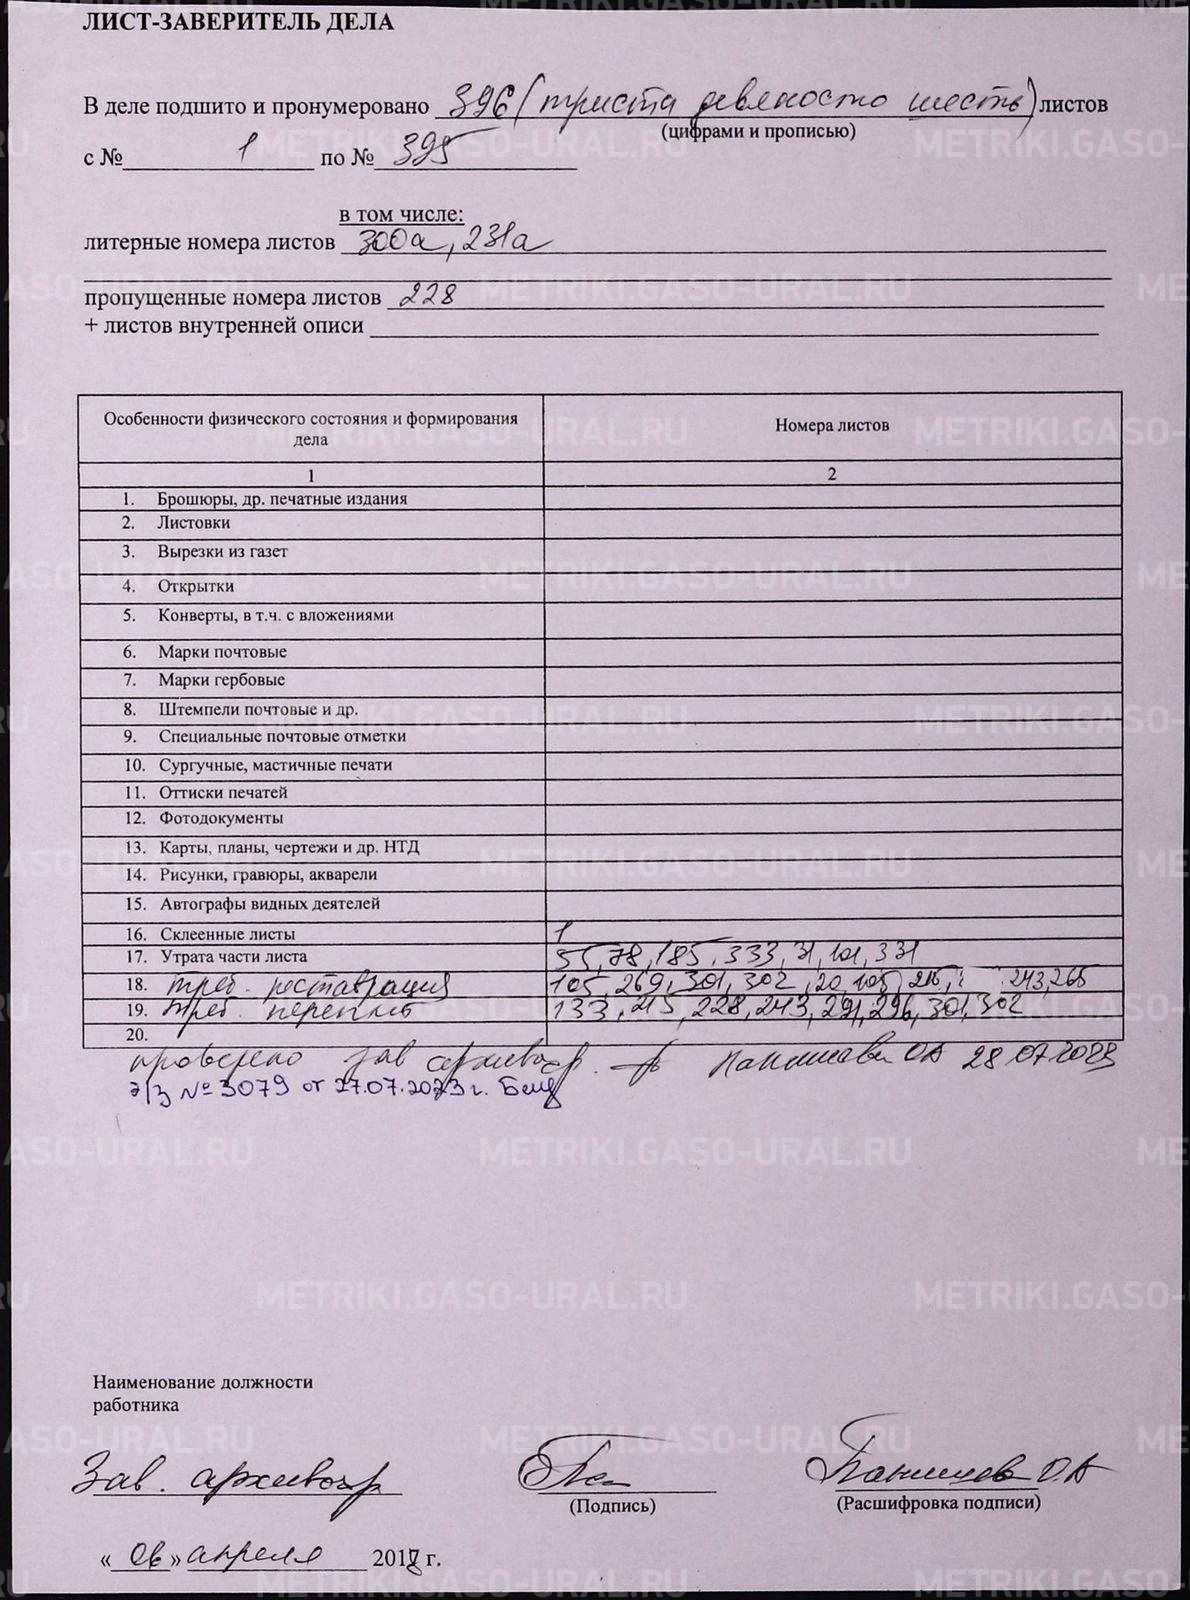 ЛИСТ-ЗАВЕРИТЕЛЬ ДЕЛА
В деле подшито и пронумеровано 396 (триста девяносто шесть) листов
(цифрами и прописью)
с № 1 по № 395
в том числе:
литерные номера листов 300а, 231а
пропущенные номера листов 228
+ листов внутренней описи
Особенности физического состояния и формирования дела
Номера листов
1
2
1. Брошюры, др. печатные издания
2. Листовки
3. Вырезки из газет
4. Открытки
5. Конверты, в т.ч. с вложениями
6. Марки почтовые
7. Марки гербовые
8. Штемпели почтовые и др.
9. Специальные почтовые отметки
10. Сургучные, мастичные печати
11. Оттиски печатей
12. Фотодокументы
13. Карты, планы, чертежи и др. НТД
14. Рисунки, гравюры, акварели
15. Автографы видных деятелей
16. Склеенные листы 1
17. Утрата части листа 55, 78, 185, 333, 31, 101, 331
18. треб. реставрация 105, 269, 301, 302, 20, 105, 216, 243, 265
19. треб. переплёт 133, 215, 228, 243, 291, 296, 301, 302
20.
проверено зав архивохр. 28.07.2023
э/з № 3079 от 27.07.2023 г.
Наименование должности
работника
Зав. архивохр
(Подпись)
(Расшифровка подписи)
« 06 » апреля 2018 г.
METRIKI.GASO-URAL.RU